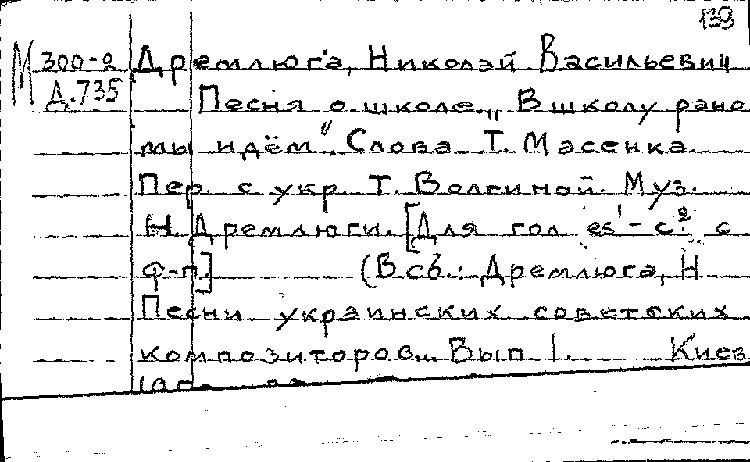 139
М 300-а Дремлюга, Николай Васильевич
Д.735 Песня о школе „В школу рано
мы идём". Слова Т. Масенка.
Пер. с укр. Т. Волгиной. Муз.
Н. Дремлюги. [Для гол. es¹-c² с
ф-п.] (В сб.: Дремлюга, Н
Песни украинских советских
композиторов... Вып 1. Киев